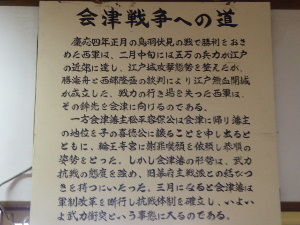 会津戦争への道
慶応四年正月の鳥羽伏見の戦で勝利をおさ
めた西軍は、二月中旬には五万の兵力が江戸
の近郊に達し、江戸城攻撃態勢を整えたが、
勝海舟と西郷隆盛の談判により江戸無血開城
が成立した、戦力の行き場を失った西軍は、
その鉾先を会津に向けるのである。
一方会津藩主松平容保公は会津に帰り藩主
の地位を子の喜徳公に譲ることを申し出ると
ともに、輪王寺宮に謝罪嘆願を依頼し恭順の
姿勢をとった。しかし会津藩の形勢は、武力
抗戦の態度を強め、旧幕府主戦派との結びつ
きを持つにいたった。三月になると会津藩は
軍制改革を断行し抗戦体制を確立し、いよい
よ武力衝突という事態に入るのである。